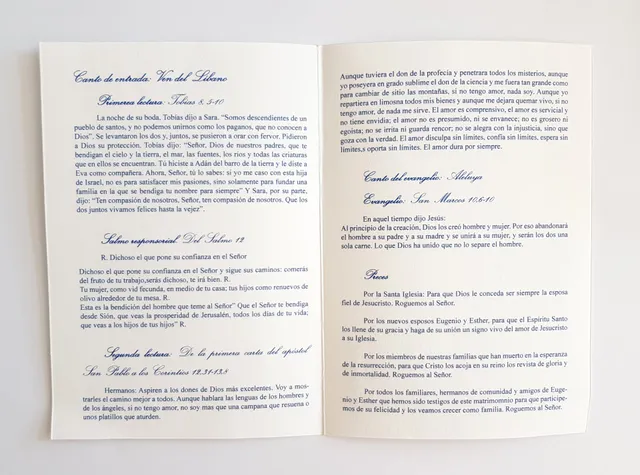 Canto de entrada: Ven del Líbano
Primera lectura: Tobías 8, 5-10
La noche de su boda, Tobías dijo a Sara. "Somos descendientes de un
pueblo de santos, y no podemos unirnos como los paganos, que no conocen a
Dios". Se levantaron los dos y, juntos, se pusieron a orar con fervor. Pidieron
a Dios su protección. Tobías dijo: "Señor, Dios de nuestros padres, que te
bendigan el cielo y la tierra, el mar, las fuentes, los ríos y todas las criaturas
que en ellos se encuentran. Tú hiciste a Adán del barro de la tierra y le diste a
Eva como compañera. Ahora, Señor, tú lo sabes: si yo me caso con esta hija
de Israel, no es para satisfacer mis pasiones, sino solamente para fundar una
familia en la que se bendiga tu nombre para siempre" Y Sara, por su parte,
dijo: "Ten compasión de nosotros, Señor, ten compasión de nosotros. Que los
dos juntos vivamos felices hasta la vejez".
Salmo responsorial: Del Salmo 12
R. Dichoso el que pone su confianza en el Señor
Dichoso el que pone su confianza en el Señor y sigue sus caminos: comerás
del fruto de tu trabajo,serás dichoso, te irá bien. R.
Tu mujer, como vid fecunda, en medio de tu casa; tus hijos como renuevos de
olivo alrededor de tu mesa. R.
Esta es la bendición del hombre que teme al Señor" Que el Señor te bendiga
desde Sión, que veas la prosperidad de Jerusalén, todos los días de tu vida;
que veas a los hijos de tus hijos" R.
Segunda lectura: De la primera carta del apóstol
San Pablo a los Corintios 12,31-13,8
Hermanos: Aspiren a los dones de Dios más excelentes. Voy a mos-
trarles el camino mejor a todos. Aunque hablara las lenguas de los hombres y
de los ángeles, si no tengo amor, no soy mas que una campana que resuena o
unos platillos que aturden.
Aunque tuviera el don de la profecía y penetrara todos los misterios, aunque
yo poseyera en grado sublime el don de la ciencia y me fuera tan grande como
para cambiar de sitio las montañas, si no tengo amor, nada soy. Aunque yo
repartiera en limosna todos mis bienes y aunque me dejara quemar vivo, si no
tengo amor, de nada me sirve. El amor es comprensivo, el amor es servicial y
no tiene envidia; el amor no es presumido, ni se envanece; no es grosero ni
egoísta; no se irrita ni guarda rencor; no se alegra con la injusticia, sino que
goza con la verdad. El amor disculpa sin límites, confía sin límites, espera sin
límites,s oporta sin límites. El amor dura por siempre.
Canto del evangelio: Aleluya
Evangelio: San Marcos 10,6-10
En aquel tiempo dijo Jesús:
Al principio de la creación, Dios los creó hombre y mujer. Por eso abandonará
el hombre a su padre y a su madre y se unirá a su mujer, y serán los dos una
sola carne. Lo que Dios ha unido que no lo separe el hombre.
Preces
Por la Santa Iglesia: Para que Dios le conceda ser siempre la esposa
fiel de Jesucristo. Roguemos al Señor.
Por los nuevos esposos Eugenio y Esther, para que el Espíritu Santo
los llene de su gracia y haga de su unión un signo vivo del amor de Jesucristo
a su Iglesia.
Por los miembros de nuestras familias que han muerto en la esperanza
de la resurrección, para que Cristo los acoja en su reino los revista de gloria y
de inmortalidad. Roguemos al Señor.
Por todos los familiares, hermanos de comunidad y amigos de Euge-
nio y Esther que hemos sido testigos de este matrimomnio para que participe-
mos de su felicidad y los veamos crecer como familia. Roguemos al Señor.